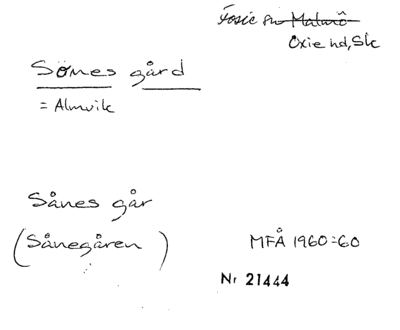 Fosie sn Malmö
Oxie hd, Sk
Sönes gård
= Almvik
Sånes går
(Sånegåren)
MFÅ 1960:60
Nr 21444